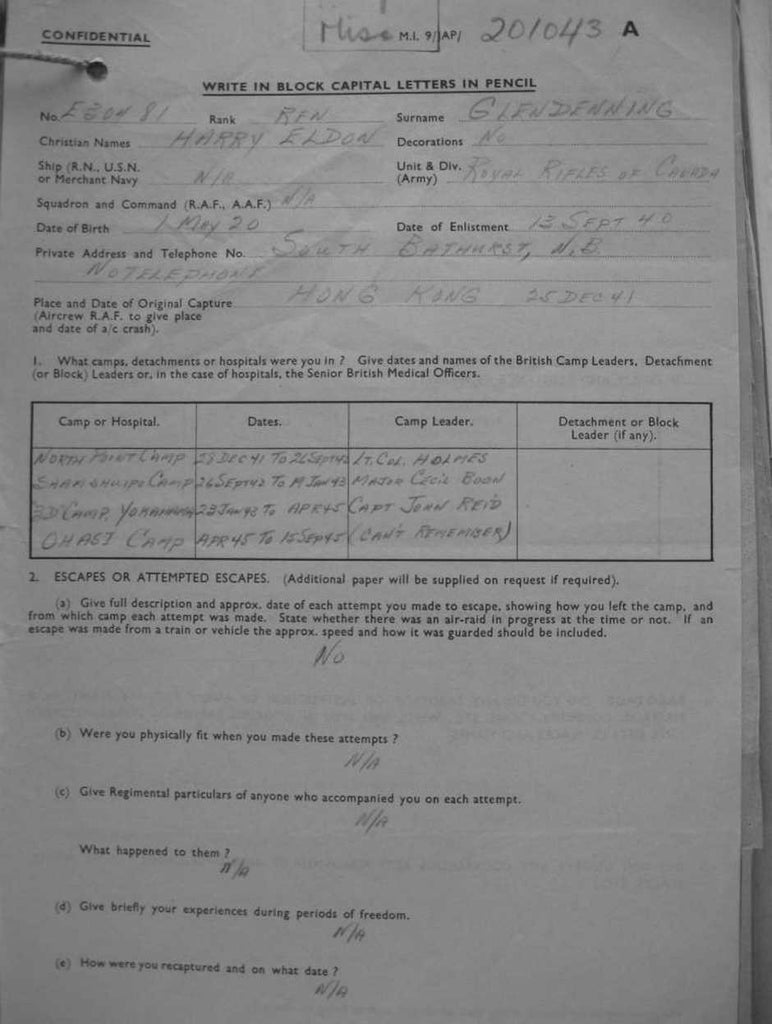 CONFIDENTIAL
Misc M.I. 9/JAP/ 201043 A
WRITE IN BLOCK CAPITAL LETTERS IN PENCIL
No. E30481 Rank RFN Surname GLENDENNING
Christian Names HARRY ELDON Decorations NO
Ship (R.N., U.S.N. or Merchant Navy N/A Unit & Div. (Army) ROYAL RIFLES OF CANADA
Squadron and Command (R.A.F., A.A.F.) N/A
Date of Birth 1 MAY 20 Date of Enlistment 13 SEPT 40
Private Address and Telephone No. SOUTH BATHURST, N.B.
NO TELEPHONE
Place and Date of Original Capture HONG KONG 25 DEC 41
(Aircrew R.A.F. to give place
and date of a/c crash).
1. What camps, detachments or hospitals were you in ? Give dates and names of the British Camp Leaders, Detachment
(or Block) Leaders or, in the case of hospitals, the Senior British Medical Officers.
Camp or Hospital. Dates. Camp Leader. Detachment or Block Leader (if any).
NORTH POINT CAMP 28 DEC 41 TO 26 SEPT 42 LT. COL. HOLMES
SHAMSHUIPO CAMP 26 SEPT 42 TO 19 JAN 43 MAJOR CECIL BOON
3D CAMP, YOKAHAMA 23 JAN 43 TO APR 45 CAPT JOHN REID
OHASI CAMP APR 45 TO 15 SEP 45 (CAN'T REMEMBER)
2. ESCAPES OR ATTEMPTED ESCAPES. (Additional paper will be supplied on request if required).
(a) Give full description and approx. date of each attempt you made to escape, showing how you left the camp, and
from which camp each attempt was made. State whether there was an air-raid in progress at the time or not. If an
escape was made from a train or vehicle the approx. speed and how it was guarded should be included.
NO
(b) Were you physically fit when you made these attempts ?
N/A
(c) Give Regimental particulars of anyone who accompanied you on each attempt.
N/A
What happened to them ?
N/A
(d) Give briefly your experiences during periods of freedom.
N/A
(e) How were you recaptured and on what date ?
N/A